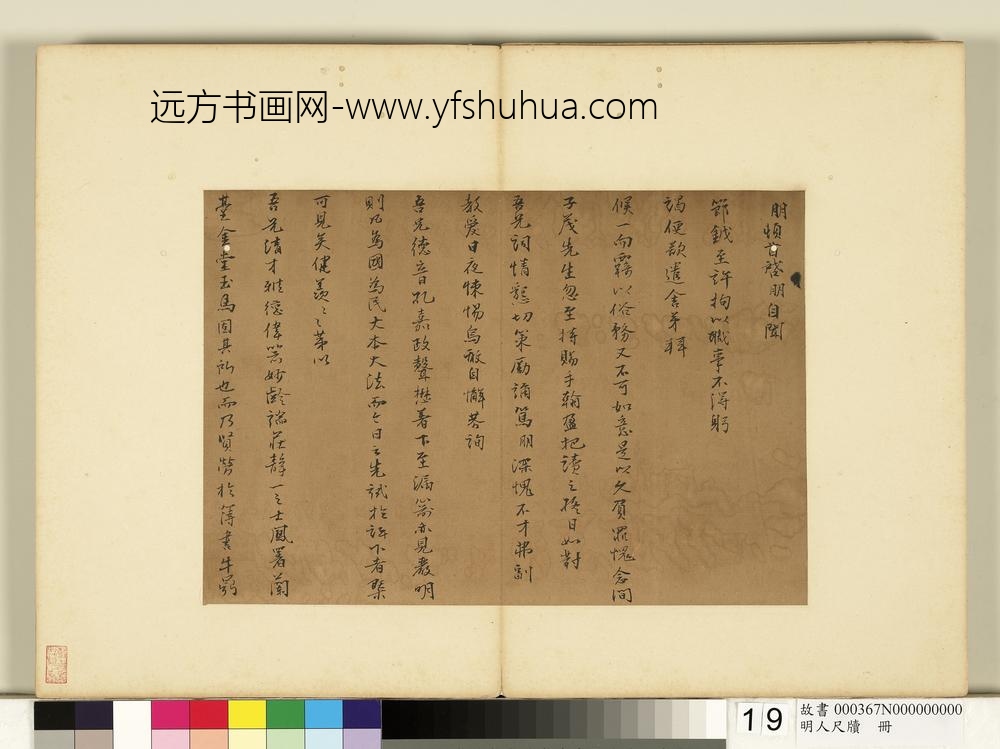 远方书画网-www.yfshuhua.com
朋頓首啓朋自聞
節鉞至許拘以職事不得躬
謁便欲遣舍弟輩
候一向靄以俗務又不可如意是以久負罪愧念間
子茂先生忽至持賜手翰盈把讀之擬日如對
吾兄詞情懇切策勵誦篤朋深愧不才弗副
教愛日夜悚惕烏敢自懈恭詢
吾兄德音孔嘉政聲懋著下至漏箭亦見嚴明
則凡為國為民大本大法而今日之先試於許下者槩
可見矣健羨之之第以
吾兄清才雅德偉器妙齡端莊靜一之士鳳署蘭
臺金堂玉馬固其所也而乃賢勞於簿書牛
19
故書 000367N000000000
明人尺牘 冊